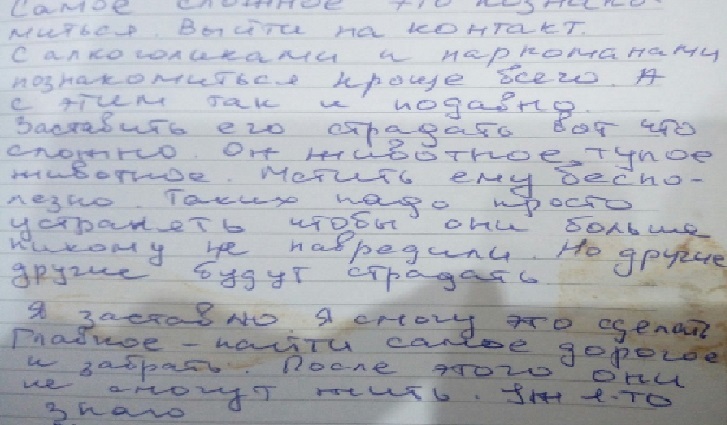 Самое сложное это познако-
миться. Выйти на контакт.
С алкоголиками и наркоманами
познакомиться проще всего. А
с этим так и подавно.
Заставить его страдать вот что
сложно. Он животное, тупое
животное. Мстить ему беспо-
лезно. Таких надо просто
устранять чтобы они больше
никому не навредили. Но другие
другие будут страдать
Я заставлю. Я смогу это сделать
Главное - найти самое дорогое
и забрать. После этого они
не смогут жить. Уж я-то
знаю